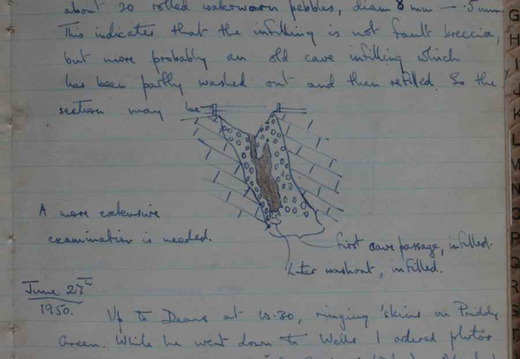 about 20 rolled waterworn pebbles, diam 8 mm — .5 mm
This indicates that the infilling is not fault breccia,
but more probably an old cave infilling which
has been partly washed out and then refilled. So the
section may be
A more extensive
examination is needed.
first cave passage, infilled.
later washout, infilled.
June 27th
1950.
Up to Deans at 10.30, ringing 'Skins on Priddy
Green. While he went down to Wells I ordered photos
G
H
I
J
K
L
M
N
O
P
Q
R
S
T